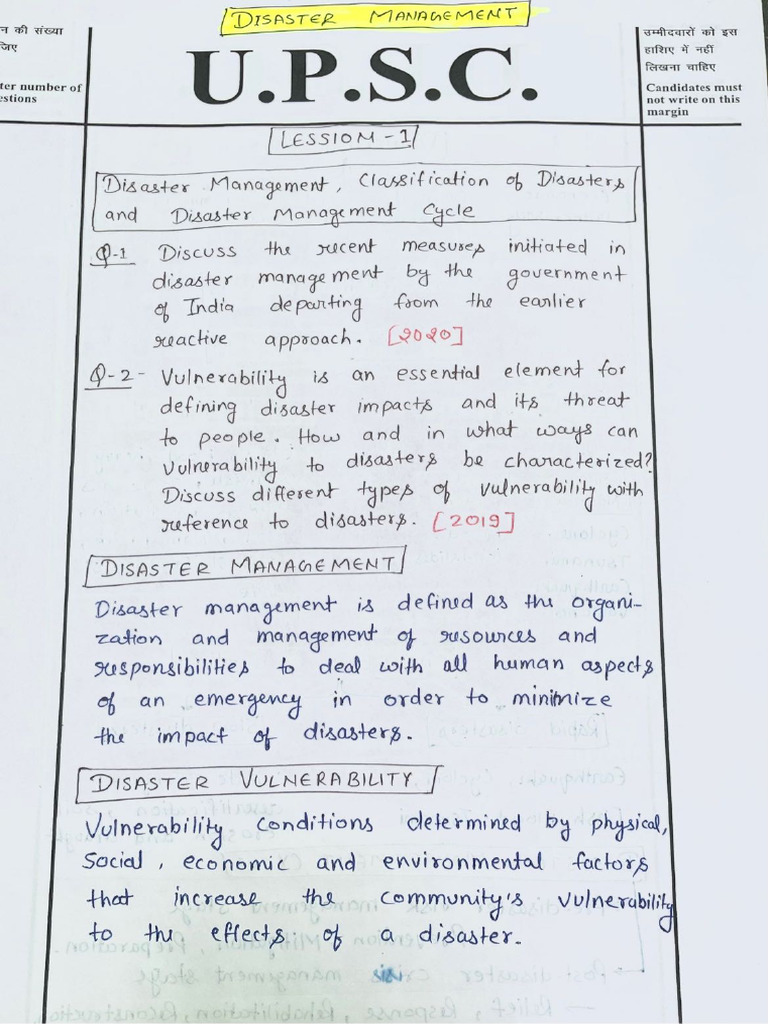 DISASTER MANAGEMENT
न की संख्या
जिए
ter number of
estions
U.P.S.C.
उम्मीदवारों को इस
हाशिए में नहीं
लिखना चाहिए
Candidates must
not write on this
margin
LESSION-1
Disaster Management, Classification of Disasters
and Disaster Management Cycle
Q-1 Discuss the recent measures initiated in
disaster management by the government
of India departing from the earlier
reactive approach. [2020]
Q-2- Vulnerability is an essential element for
defining disaster impacts and its threat
to people. How and in what ways can
vulnerability to disasters be characterized?
Discuss different types of vulnerability with
reference to disasters. [2019]
DISASTER MANAGEMENT
Disaster management is defined as the organi-
zation and management of resources and
responsibilities to deal with all human aspects
of an emergency in order to minimize
the impact of disasters.
DISASTER VULNERABILITY
Vulnerability conditions determined by physical,
Social, economic and environmental factors
that increase the community's vulnerability
to the effects of a disaster.